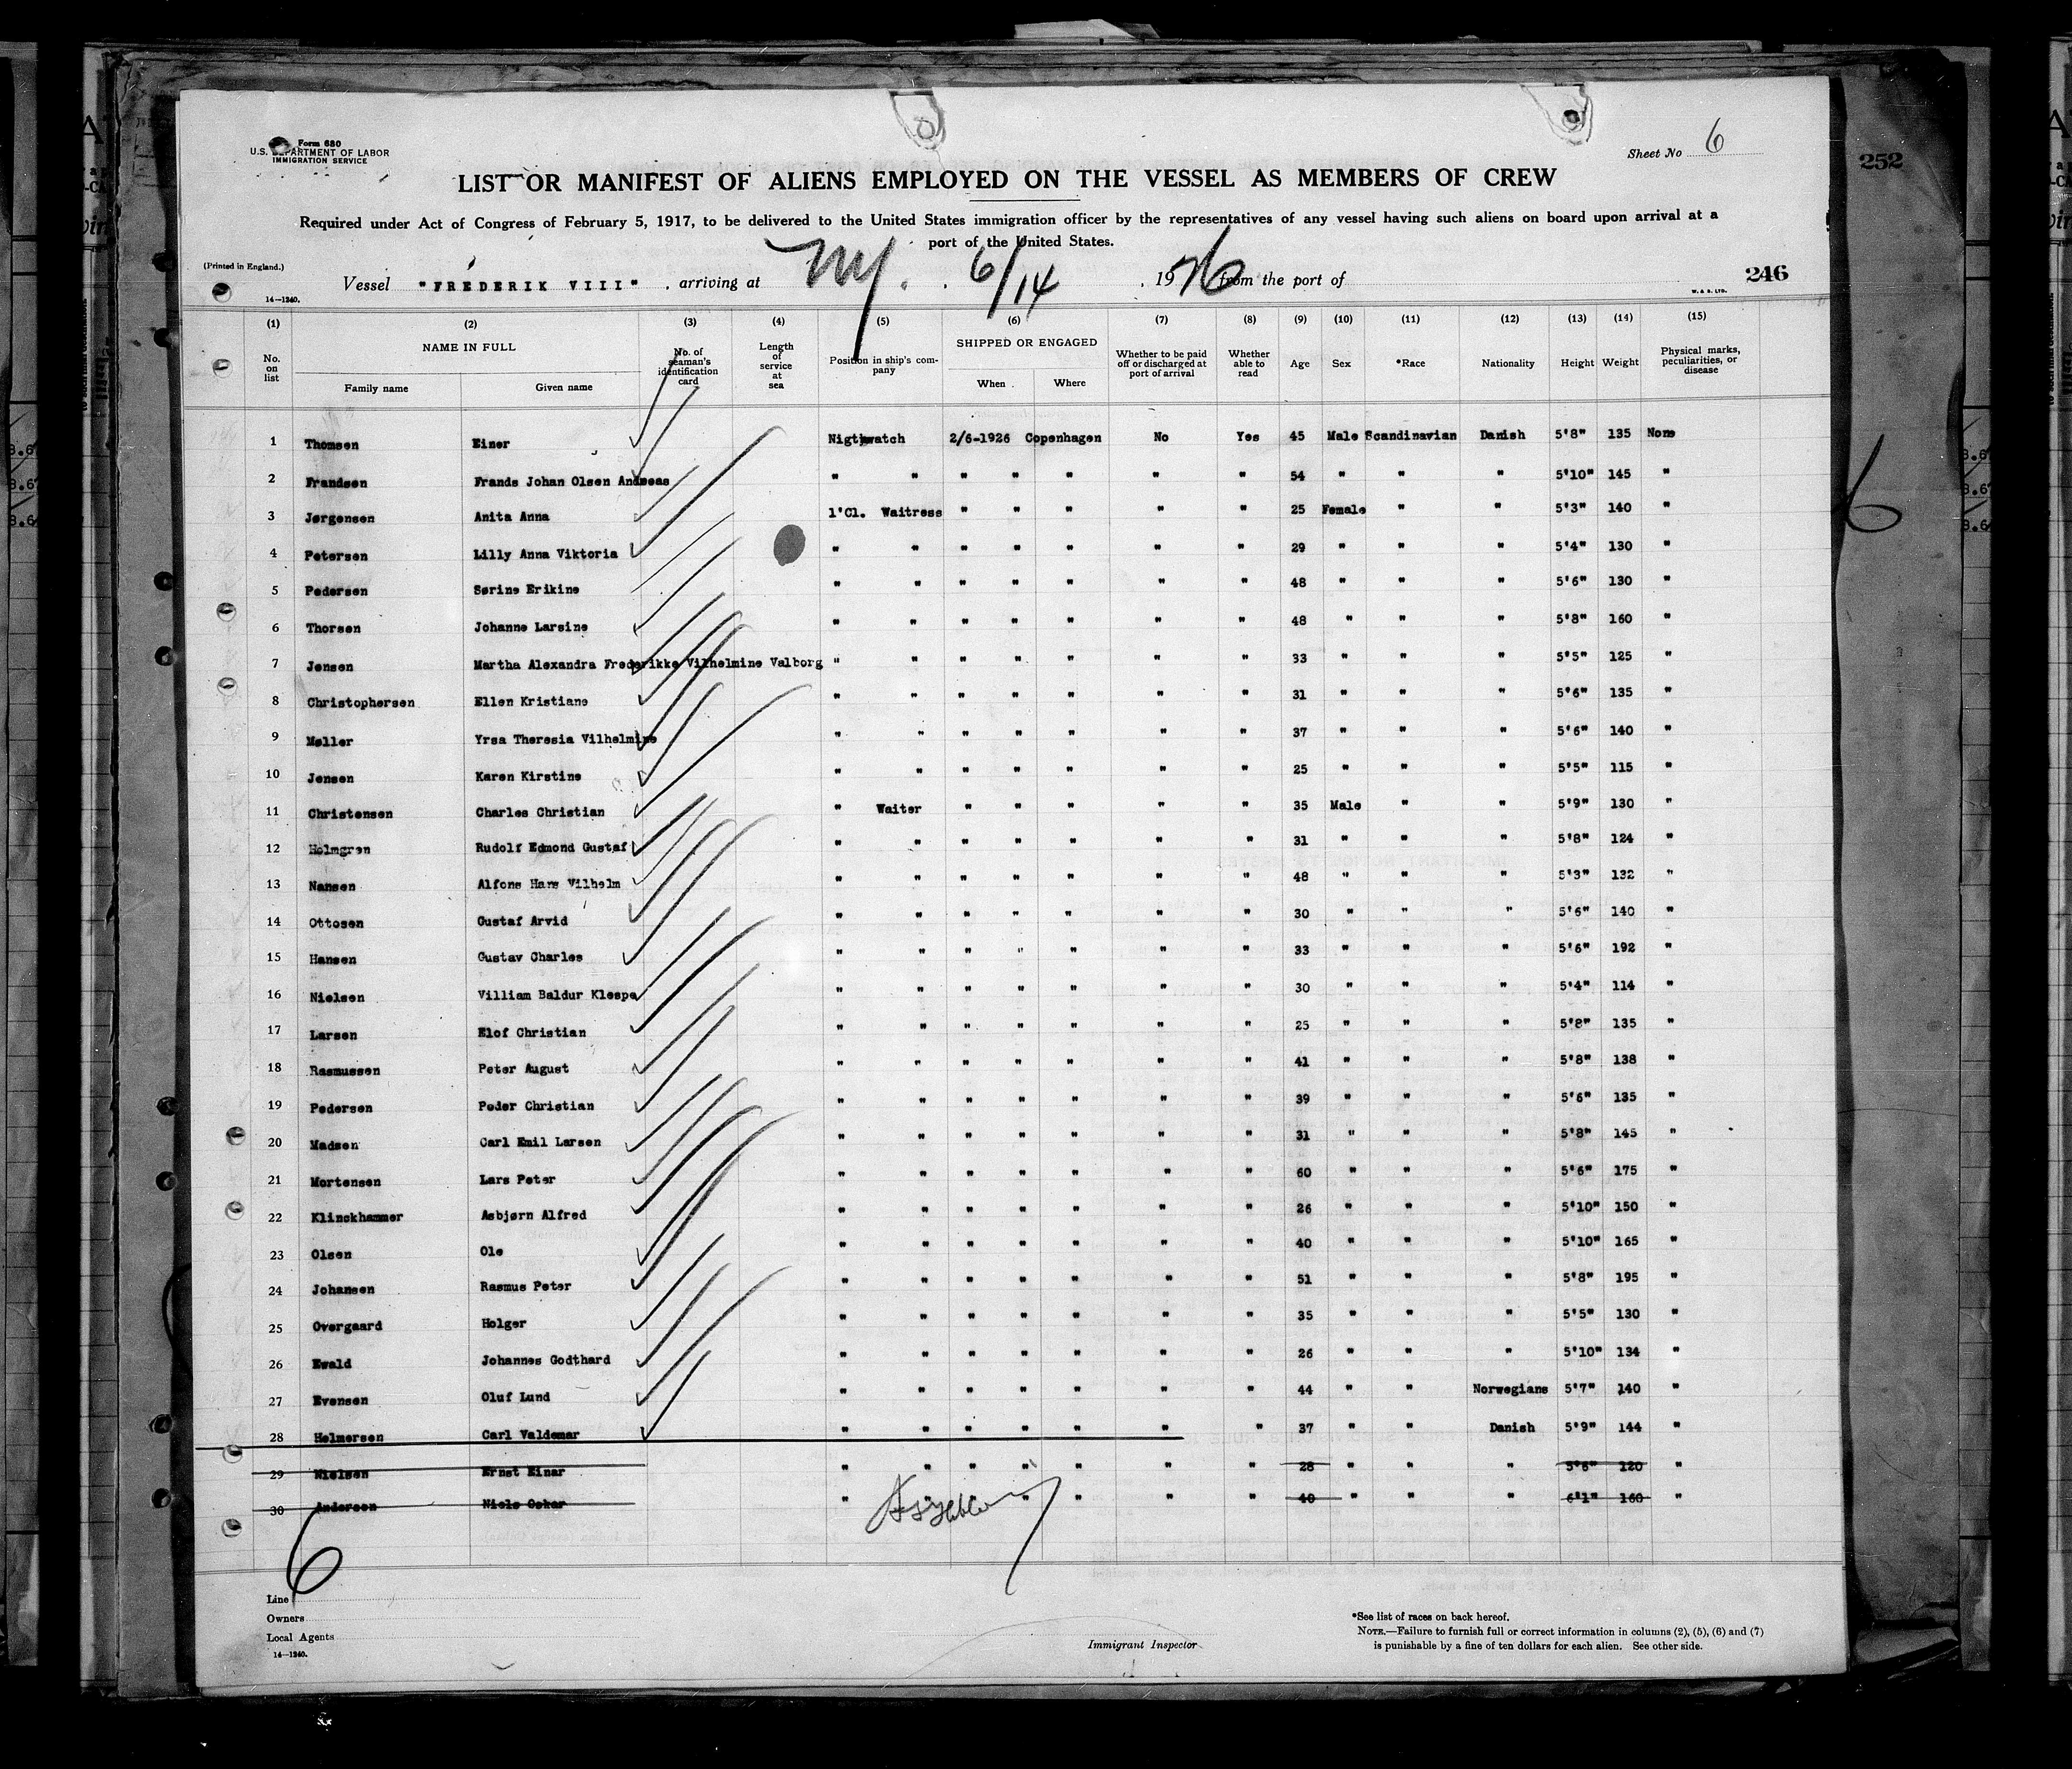 Form 680
U.S. DEPARTMENT OF LABOR
IMMIGRATION SERVICE
Sheet No 6
252
LIST OR MANIFEST OF ALIENS EMPLOYED ON THE VESSEL AS MEMBERS OF CREW
Required under Act of Congress of February 5, 1917, to be delivered to the United States immigration officer by the representatives of any vessel having such aliens on board upon arrival at a
port of the United States.
(Printed in England.)
Vessel "FREDERIK VIII", arriving at NY. 6/14, 1926 from the port of
246
14—1240.
W. & S. LTD.
(1) (2) (3) (4) (5) (6) (7) (8) (9) (10) (11) (12) (13) (14) (15)
No. on list NAME IN FULL Family name Given name No. of seaman's identification card Length of service at sea Position in ship's company SHIPPED OR ENGAGED When Where Whether to be paid off or discharged at port of arrival Whether able to read Age Sex *Race Nationality Height Weight Physical marks, peculiarities, or disease
1 Thomsen Einer Nigthwatch 2/6-1926 Copenhagen No Yes 45 Male Scandinavian Danish 5'8" 135 None
2 Frandsen Frands Johan Olsen Andreas " " " " " " " 54 " " " 5'10" 145 "
3 Jørgensen Anita Anna 1'Cl. Waitress " " " " " 25 Female " " 5'3" 140 "
4 Petersen Lilly Anna Viktoria " " " " " " " 29 " " " 5'4" 130 "
5 Pedersen Sørine Erikine " " " " " " " 48 " " " 5'6" 130 "
6 Thorsen Johanne Larsine " " " " " " " 48 " " " 5'8" 160 "
7 Jensen Martha Alexandra Frederikke Vilhelmine Valborg " " " " " " " 33 " " " 5'5" 125 "
8 Christophersen Ellen Kristiane " " " " " " " 31 " " " 5'6" 135 "
9 Møller Yrsa Theresia Vilhelmine " " " " " " " 37 " " " 5'6" 140 "
10 Jensen Karen Kirstine " " " " " " " 25 " " " 5'5" 115 "
11 Christensen Charles Christian " Waiter " " " " " 35 Male " " 5'9" 130 "
12 Holmgren Rudolf Edmond Gustaf " " " " " " " 31 " " " 5'8" 124 "
13 Nansen Alfons Hans Vilhelm " " " " " " " 48 " " " 5'3" 132 "
14 Ottosen Gustaf Arvid " " " " " " " 30 " " " 5'6" 140 "
15 Hansen Gustav Charles " " " " " " " 33 " " " 5'6" 192 "
16 Nielsen Villiam Baldur Klespe " " " " " " " 30 " " " 5'4" 114 "
17 Larsen Elof Christian " " " " " " " 25 " " " 5'8" 135 "
18 Rasmussen Peter August " " " " " " " 41 " " " 5'8" 138 "
19 Pedersen Peder Christian " " " " " " " 39 " " " 5'6" 135 "
20 Madsen Carl Emil Larsen " " " " " " " 31 " " " 5'8" 145 "
21 Mortensen Lars Peter " " " " " " " 60 " " " 5'6" 175 "
22 Klinckhammer Asbjørn Alfred " " " " " " " 26 " " " 5'10" 150 "
23 Olsen Ole " " " " " " " 40 " " " 5'10" 165 "
24 Johansen Rasmus Peter " " " " " " " 51 " " " 5'8" 195 "
25 Overgaard Holger " " " " " " " 35 " " " 5'5" 130 "
26 Ewald Johannes Godthard " " " " " " " 26 " " " 5'10" 134 "
27 Evensen Oluf Lund " " " " " " " 44 " " Norwegians 5'7" 140 "
28 Helmersen Carl Valdemar " " " " " " " 37 " " Danish 5'9" 144 "
29 Nielsen Ernst Einar " " " " " " " 28 " " " 5'6" 120 "
30 Andersen Niels Oskar " " " " " " " 40 " " " 6'1" 160 "
6
6
Line
Owners
Local Agents
14—1240.
Immigrant Inspector
*See list of races on back hereof.
NOTE.—Failure to furnish full or correct information in columns (2), (5), (6) and (7)
is punishable by a fine of ten dollars for each alien. See other side.